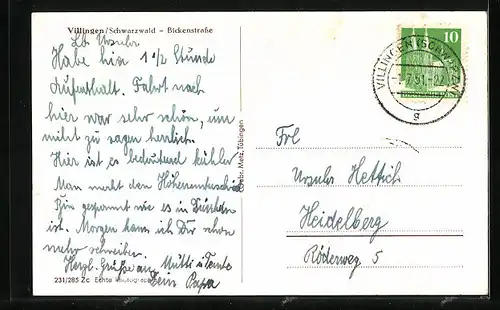 Villingen/Schwarzwald - Bickenstraße
Lb. Ursula!
Habe hier 1 1/2 Stunde
Aufenthalt. Fahrt nach
hier war sehr schön, um
nicht zu sagen herrlich.
Hier ist es bedeutend kühler
Man merkt den Höhenunterschied
Bin gespannt wie es in
ist. Morgen kann ich Dir schon
mehr schreiben.
Herzl. Grüße an Mutti u. Tante
Dein Papa
231/285 Zc Echte Photographie
Gebr. Metz, Tübingen
10
VILLINGEN (SCHWARZW)
-1.7.51.-
g
Frl
Ursula Hettich
Heidelberg
Röderweg 5